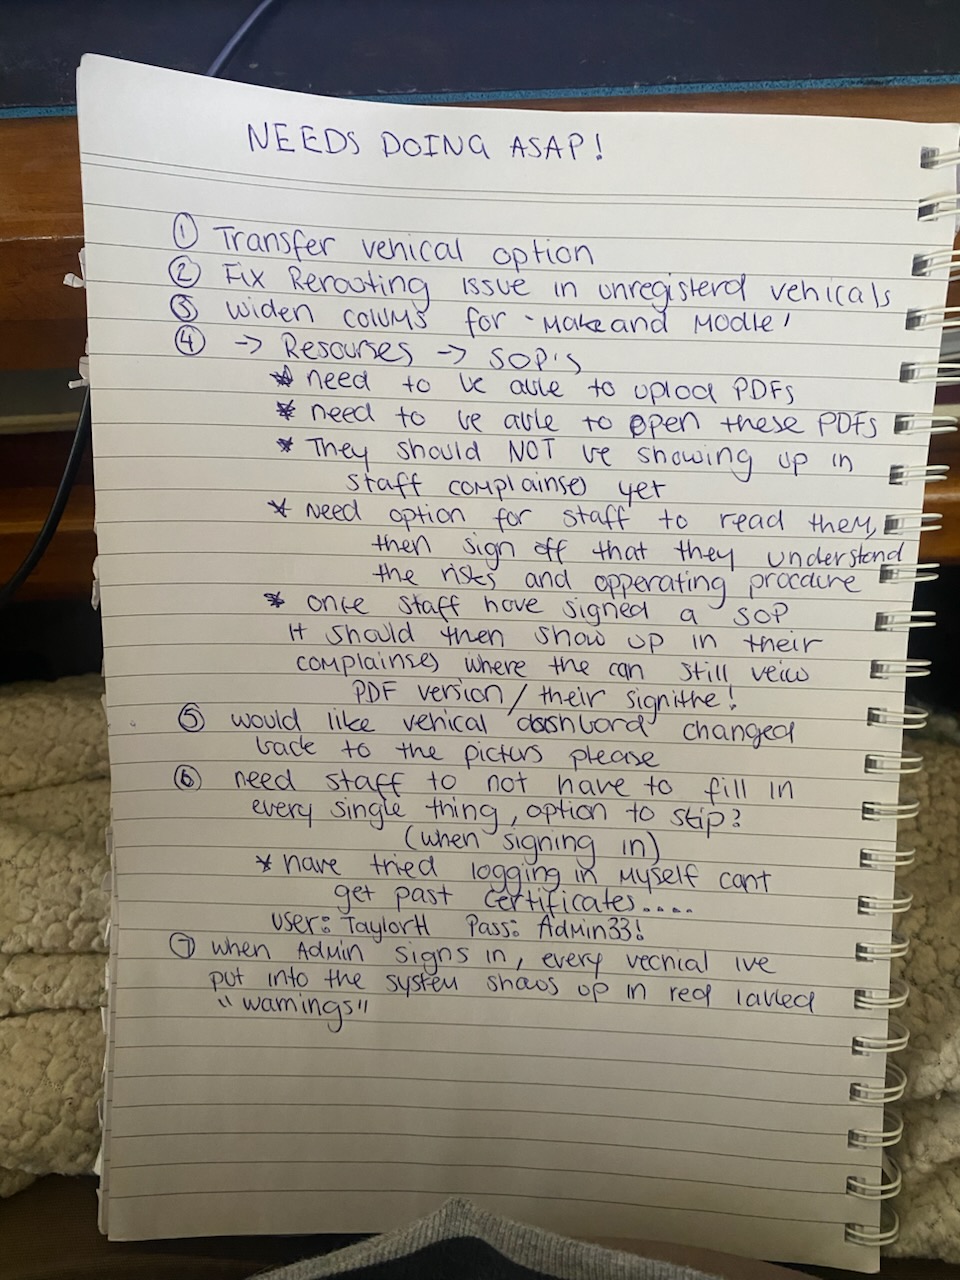 NEEDS DOING ASAP!
① Transfer vehical option
② Fix Rerouting issue in unregisterd vehicals
③ widen colums for 'Make and Modle'
④ -> Resourses -> SOP's
* need to be able to uplod PDFs
* need to be able to open these PDFs
* They should NOT be showing up in
staff complainse) yet
* need option for staff to read them,
then sign off that they understand
the risks and opperating procdure
* once staff have signed a SOP
It should then show up in their
complainses) where the can still veiw
PDF version / their signithe!
⑤ would like vehical dashbord changed
back to the picturs please
⑥ need staff to not have to fill in
every single thing, option to skip?
(when signing in)
* have tried logging in myself cant
get past certificates....
user: TaylorH Pass: Admin33!
⑦ when Admin signs in, every vechial ive
put into the system shows up in red labled
"warnings"